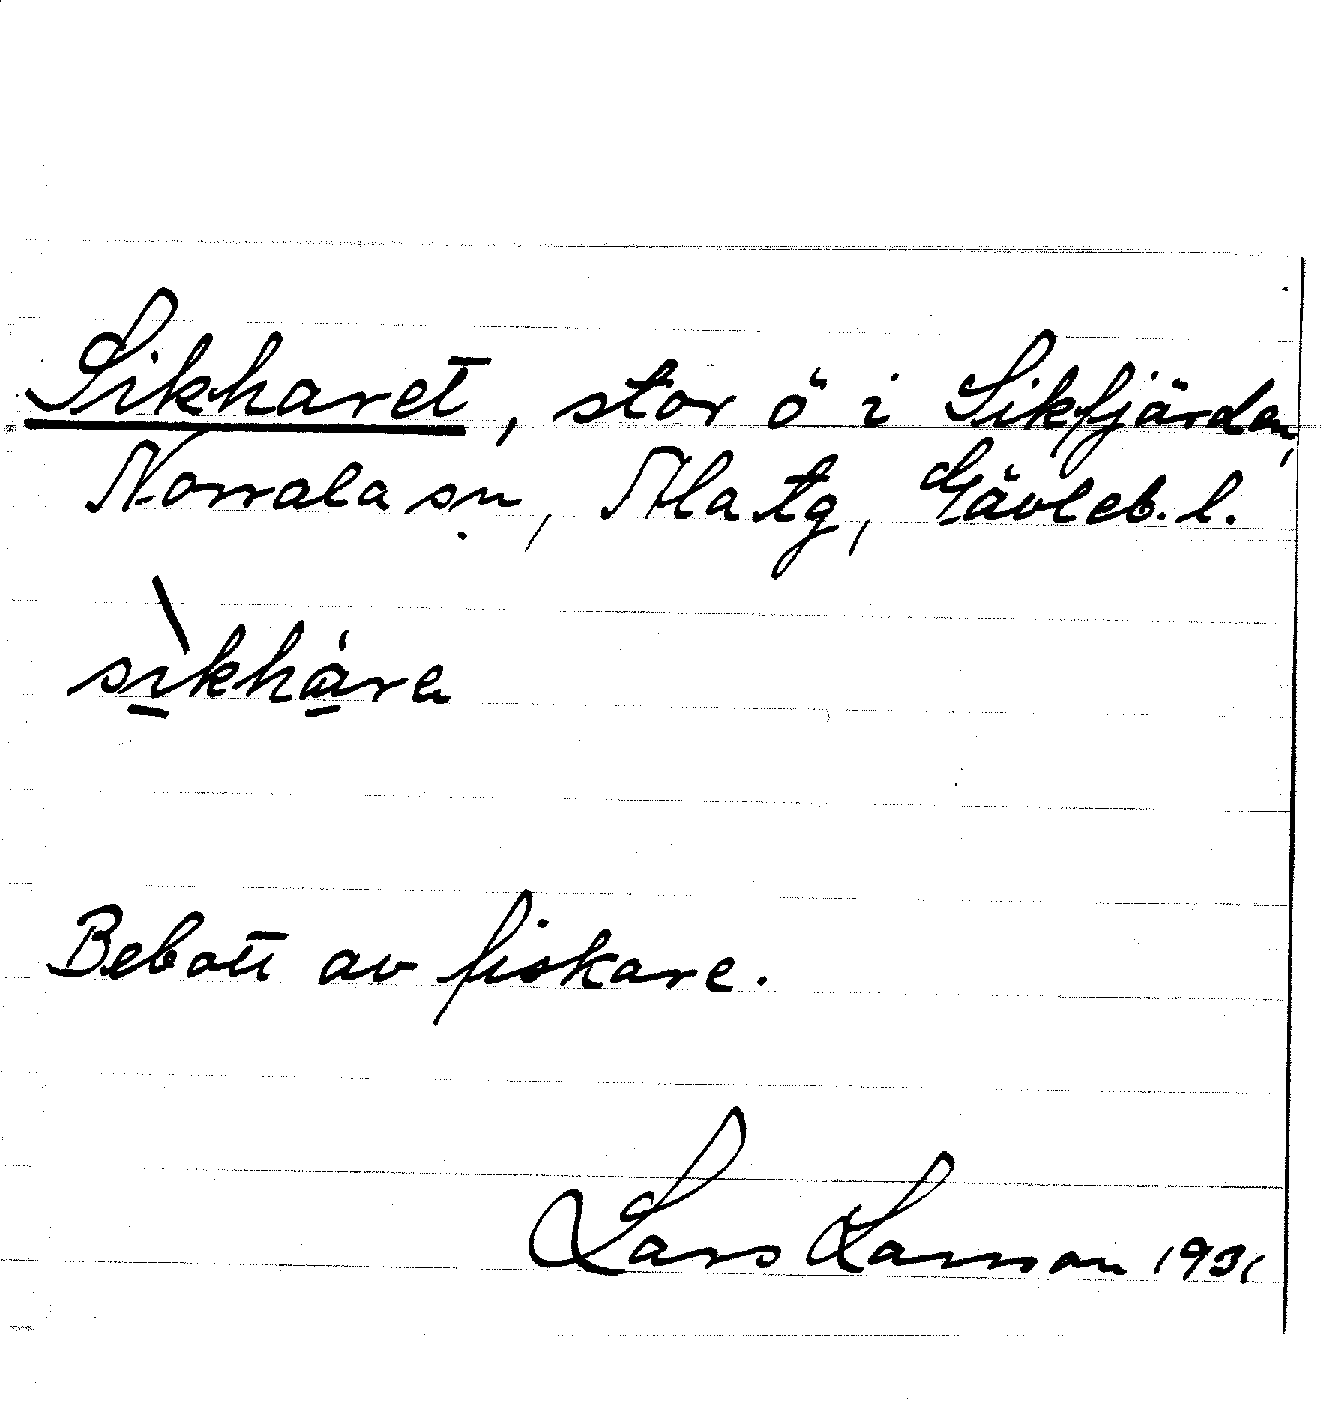 Sikharet, stor ö i Sikfjärden,
Norrala sn, Ala tg, Gävleb. l.
sìkhàra
Bebott av fiskare.
Lars Larsson 1931